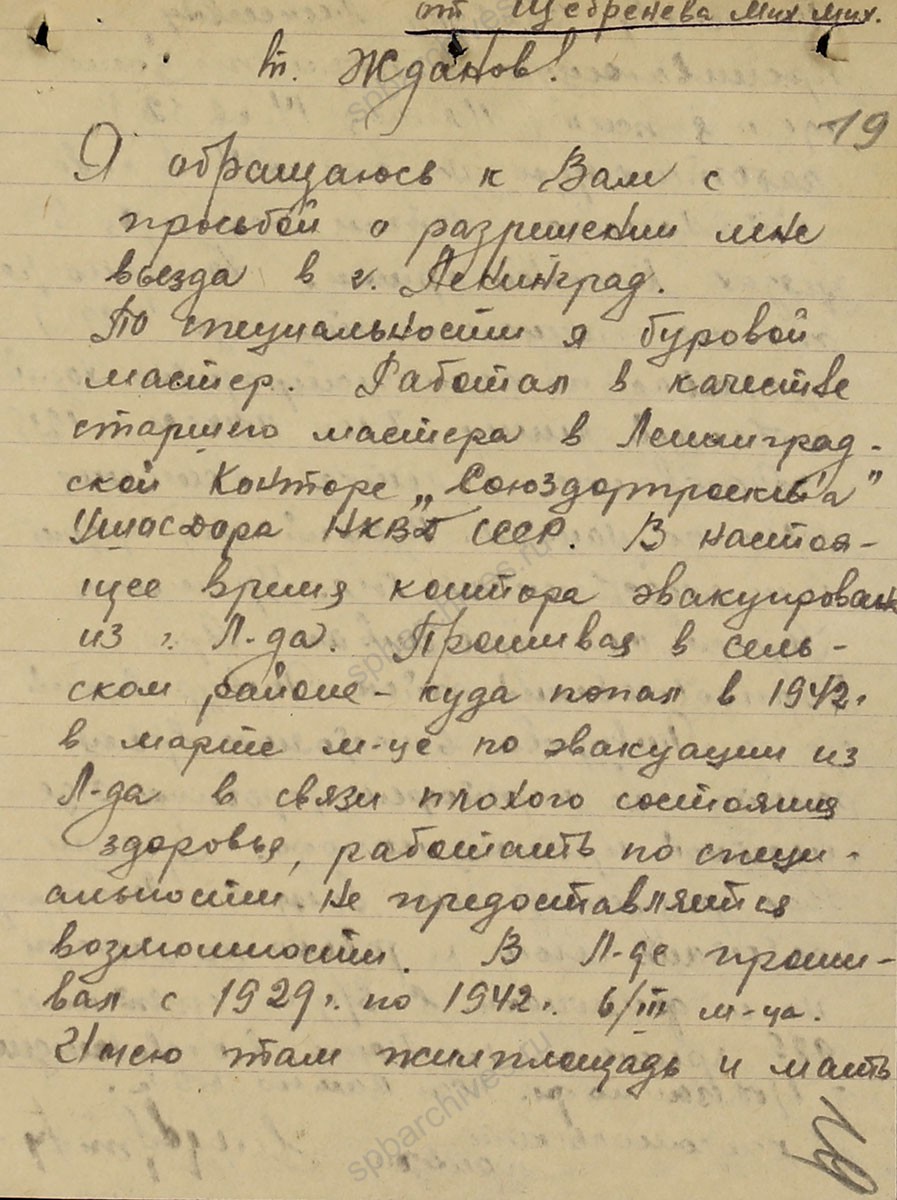 от Щебренева Мих. Мих.
т. Жданов!
19
Я обращаюсь к Вам с
просьбой о разрешении мне
въезда в г. Ленинград.
По специальности я буровой
мастер. Работал в качестве
старшего мастера в Ленинград-
ской Конторе „Союздорпроект'а"
Ушосдора НКВД СССР. В настоя-
щее время контора эвакуирован
из г. Л-да. Проживая в сель-
ском районе - куда попал в 1942г.
в марте м-це по эвакуации из
Л-да в связи плохого состояния
здоровья, работать по специ-
альности не предоставляется
возможности. В Л-де прожи-
вал с 1929г. по 1942г. 6/III м-ца.
Имею там жилплощадь и мать
spbarchives.ru
spbarchives.ru